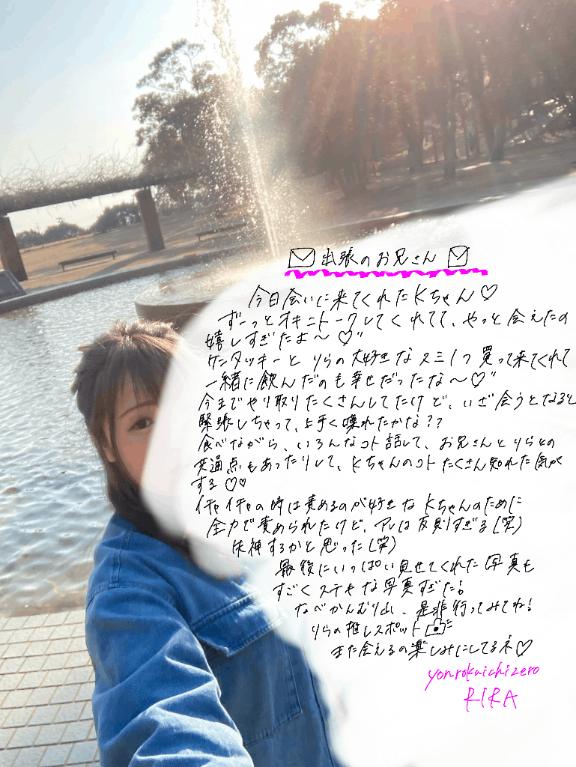 出張のお兄さん
今日会いに来てくれたKちゃん♡
ずーっとオキニトークしてくれてて、やっと会えたの
嬉しすぎたよ〜♡"
ケンタッキーと りらの大好きなスミノフ買って来てくれて
一緒に飲んだのも幸せだったな〜♡"
今までやり取りたくさんしてたけど、いざ会うとなると
緊張しちゃって、上手く喋れたかな??
食べながら、いろんなコト話して、お兄さんとりらとの
共通点もあったりして、Kちゃんのコトたくさん知れた気が
する♡♡
イチャイチャの時は責めるのが好きな Kちゃんのために
全力で責められたけど、アレは反則すぎる(笑)
失神するかと思った(笑)
最後にいっぱい見せてくれた写真も
すごくステキな写真すぎた!
なべかんむり山、是非行ってみてね!
りらの推しスポット
また会えるの楽しみにしてるネ♡
yonrokuichizero
RIRA